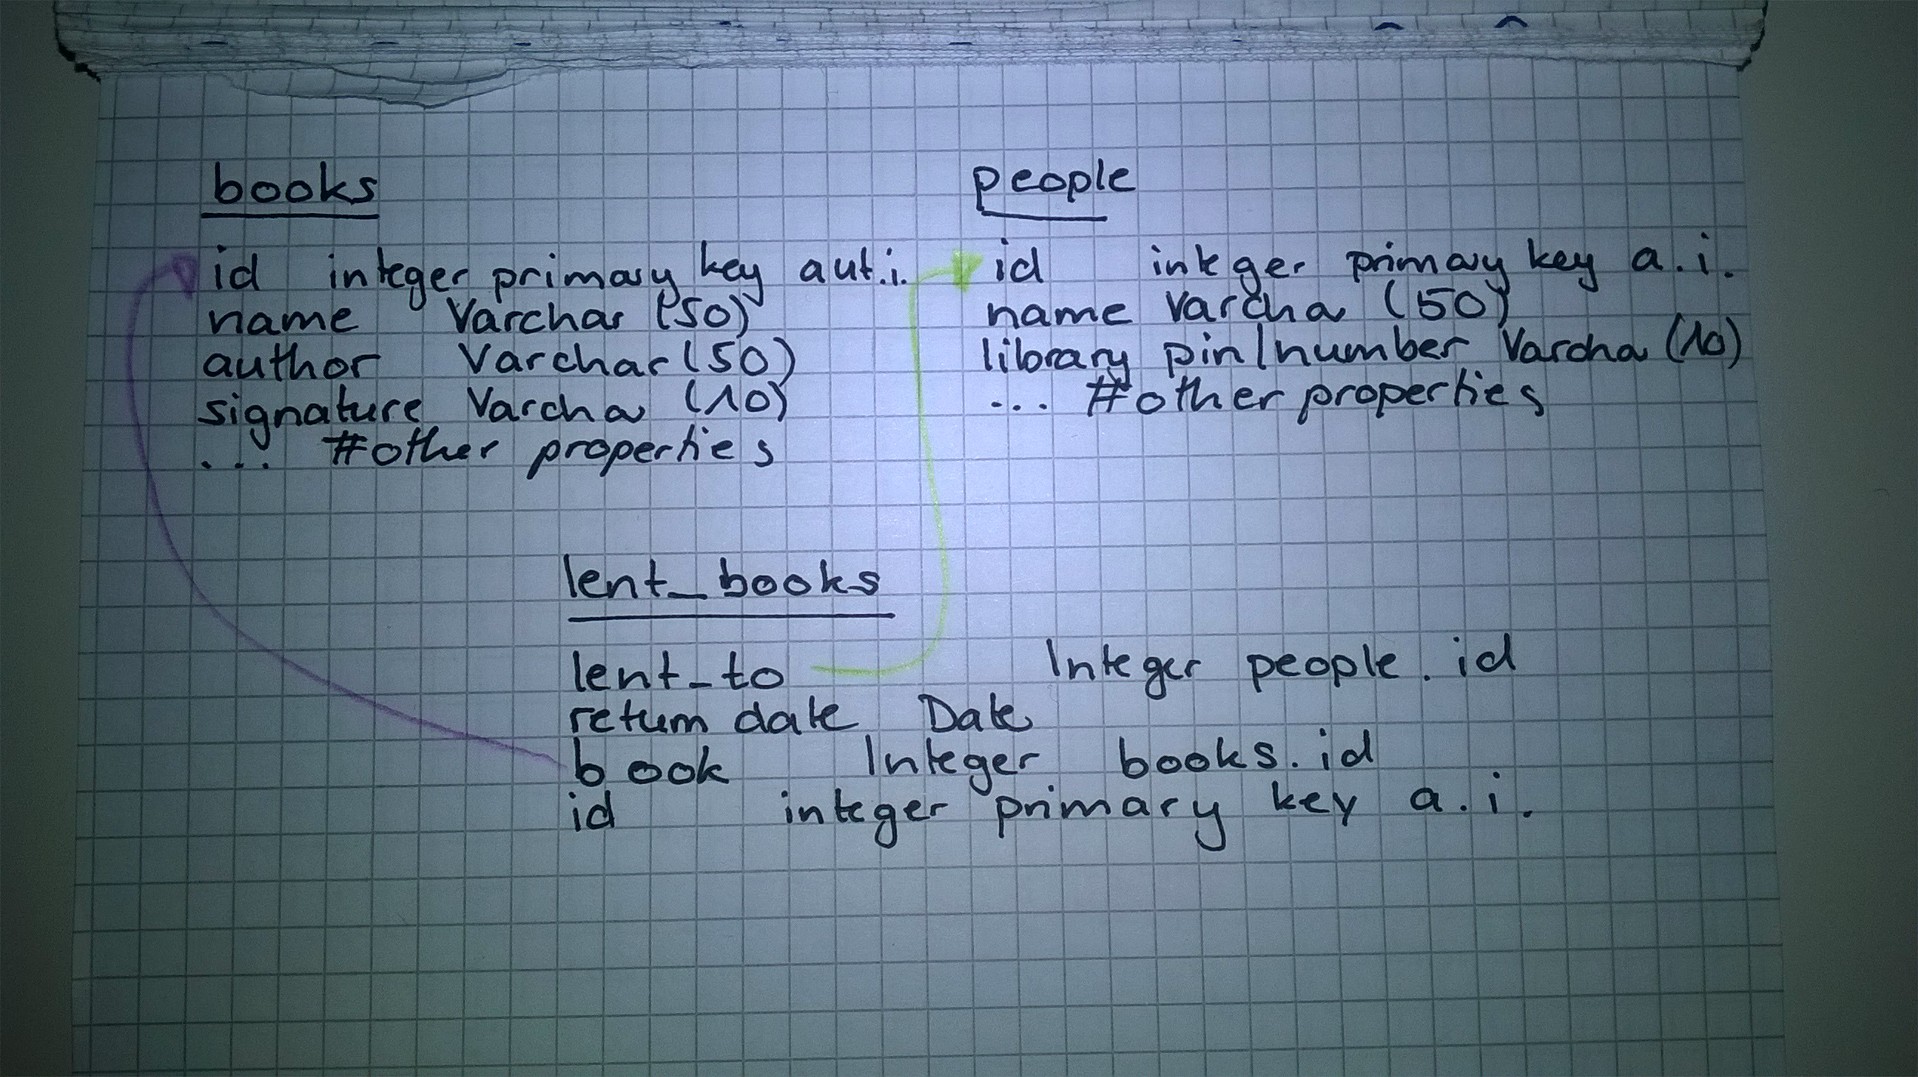 books
id integer primary key aut.i.
name Varchar (50)
author Varchar (50)
signature Varcha (10)
... #other properties
people
id integer primary key a.i.
name Varcha (50)
library pin/number Varcha (10)
... #other properties
lent_books
lent_to Integer people.id
return date Date
book Integer books.id
id integer primary key a.i.